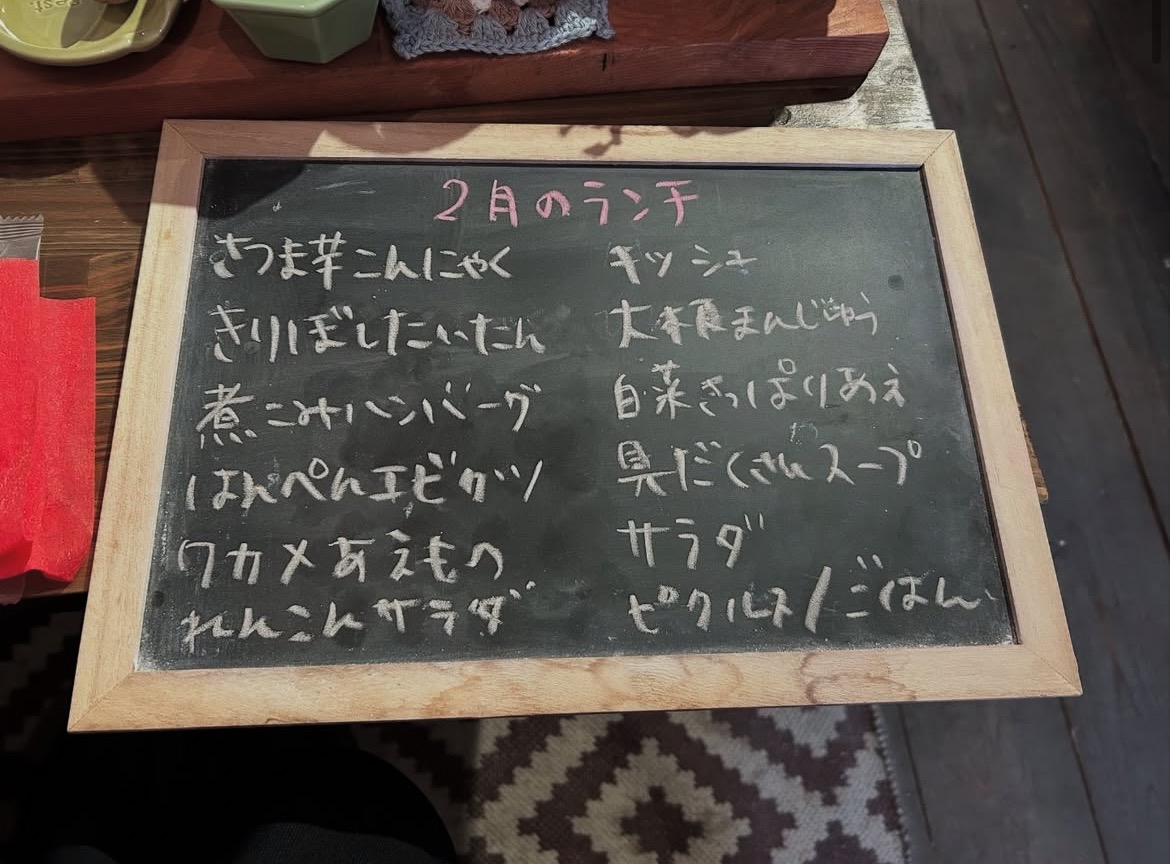 2月のランチ
さつま芋こんにゃく
きりぼしたいたん
煮こみハンバーグ
はんぺんエビカツ
ワカメあえもの
れんこんサラダ
キッシュ
大根まんじゅう
白菜さっぱりあえ
具だくさんスープ
サラダ
ピクルス/ごはん